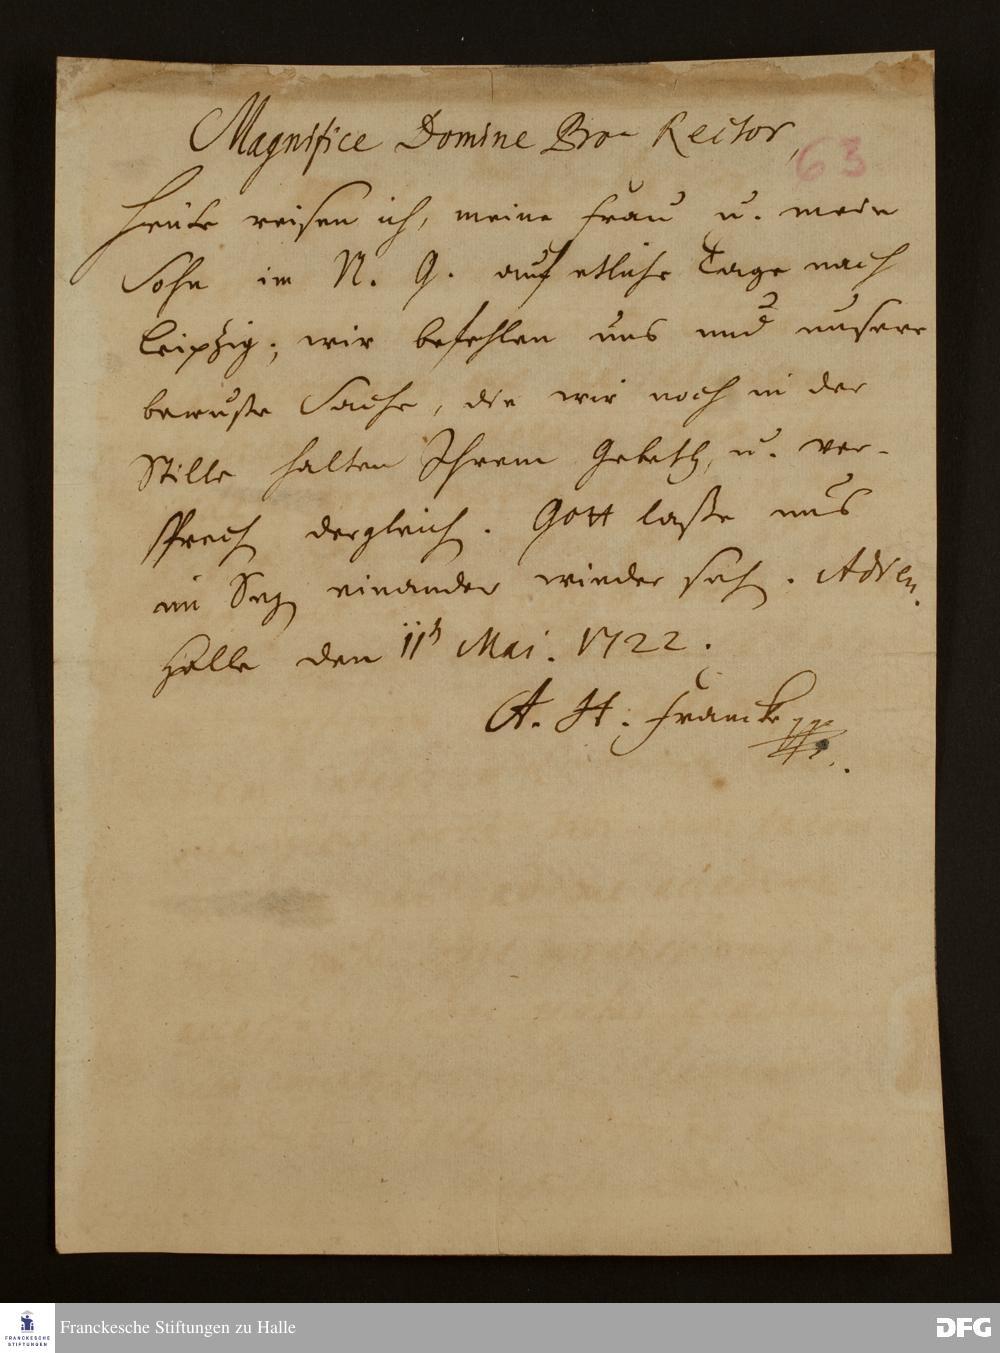 Magnifice Domine Pro-Rector,
63
Heute reisen ich, meine Frau u. mein
Sohn im N. G. auf etliche Tage nach
Leipzig; wir befehlen uns und unsere
bewuste Sache, die wir noch in der
Stille halten Ihrem Gebeth, u. ver-
sprech dergleich. Gott laße uns
im Seg einander wieder seh. Adieu.
Halle den 11 Mai. 1722.
A. H. Francke
FRANCKESCHE
STIFTUNGEN
Franckesche Stiftungen zu Halle
DFG